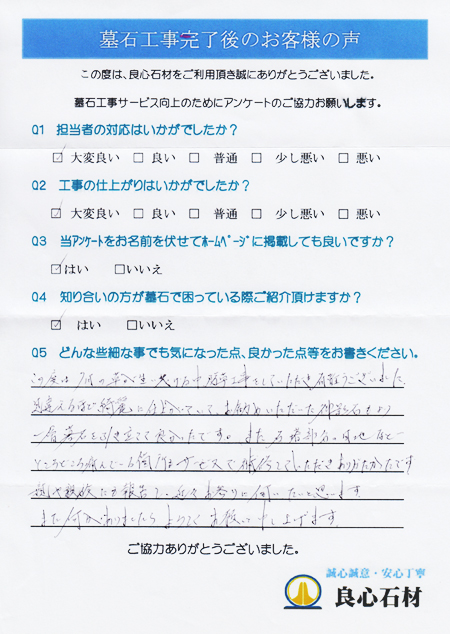 墓石工事完了後のお客様の声
この度は、良心石材をご利用頂き誠にありがとうございました。
墓石工事サービス向上のためにアンケートのご協力お願いします。
Q1 担当者の対応はいかがでしたか？
☑ 大変良い □ 良い □ 普通 □ 少し悪い □ 悪い
Q2 工事の仕上がりはいかがでしたか？
☑ 大変良い □ 良い □ 普通 □ 少し悪い □ 悪い
Q3 当アンケートをお名前を伏せてホームページに掲載しても良いですか？
☑はい □いいえ
Q4 知り合いの方が墓石で困っている際ご紹介頂けますか？
☑ はい □いいえ
Q5 どんな些細な事でも気になった点、良かった点等をお書きください。
この度は
見違えるほど綺麗に仕上がっていて
良かったです。また
ところどころ サービスで していただきありがたかったです
近々お参りに伺いたいと思います
また何かありましたらよろしくお願い申し上げます。
ご協力ありがとうございました。
誠心誠意・安心丁寧
良心石材